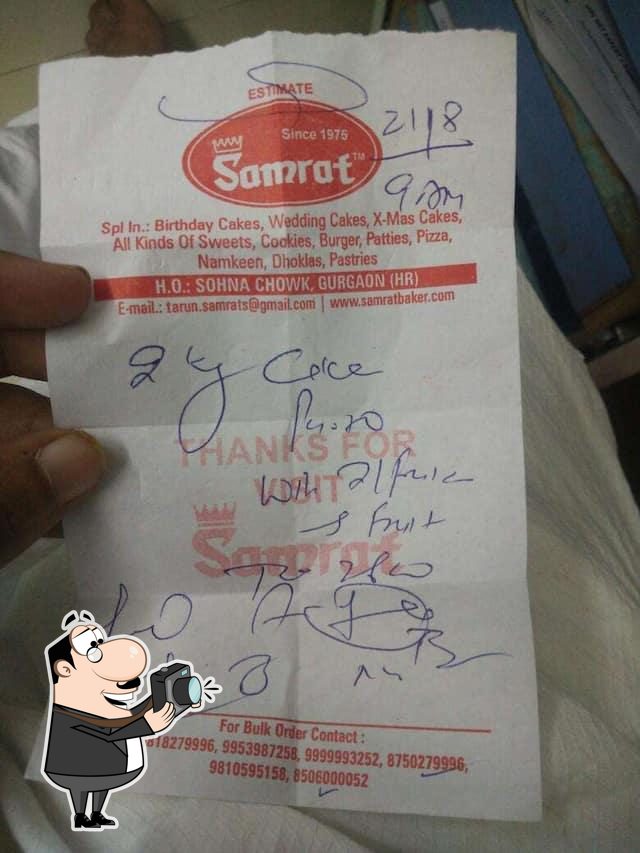 ESTIMATE
Since 1975
Samrat™
21/8
9 AM
Spl In.: Birthday Cakes, Wedding Cakes, X-Mas Cakes,
All Kinds Of Sweets, Cookies, Burger, Patties, Pizza,
Namkeen, Dhoklas, Pastries
H.O.: SOHNA CHOWK, GURGAON (HR)
E-mail.: tarun.samrats@gmail.com | www.samratbaker.com
2 kg Cake
THANKS FOR
with
VISIT
fruit
Samrat
For Bulk Order Contact :
818279996, 9953987258, 9999993252, 8750279996,
9810595158, 8506000052